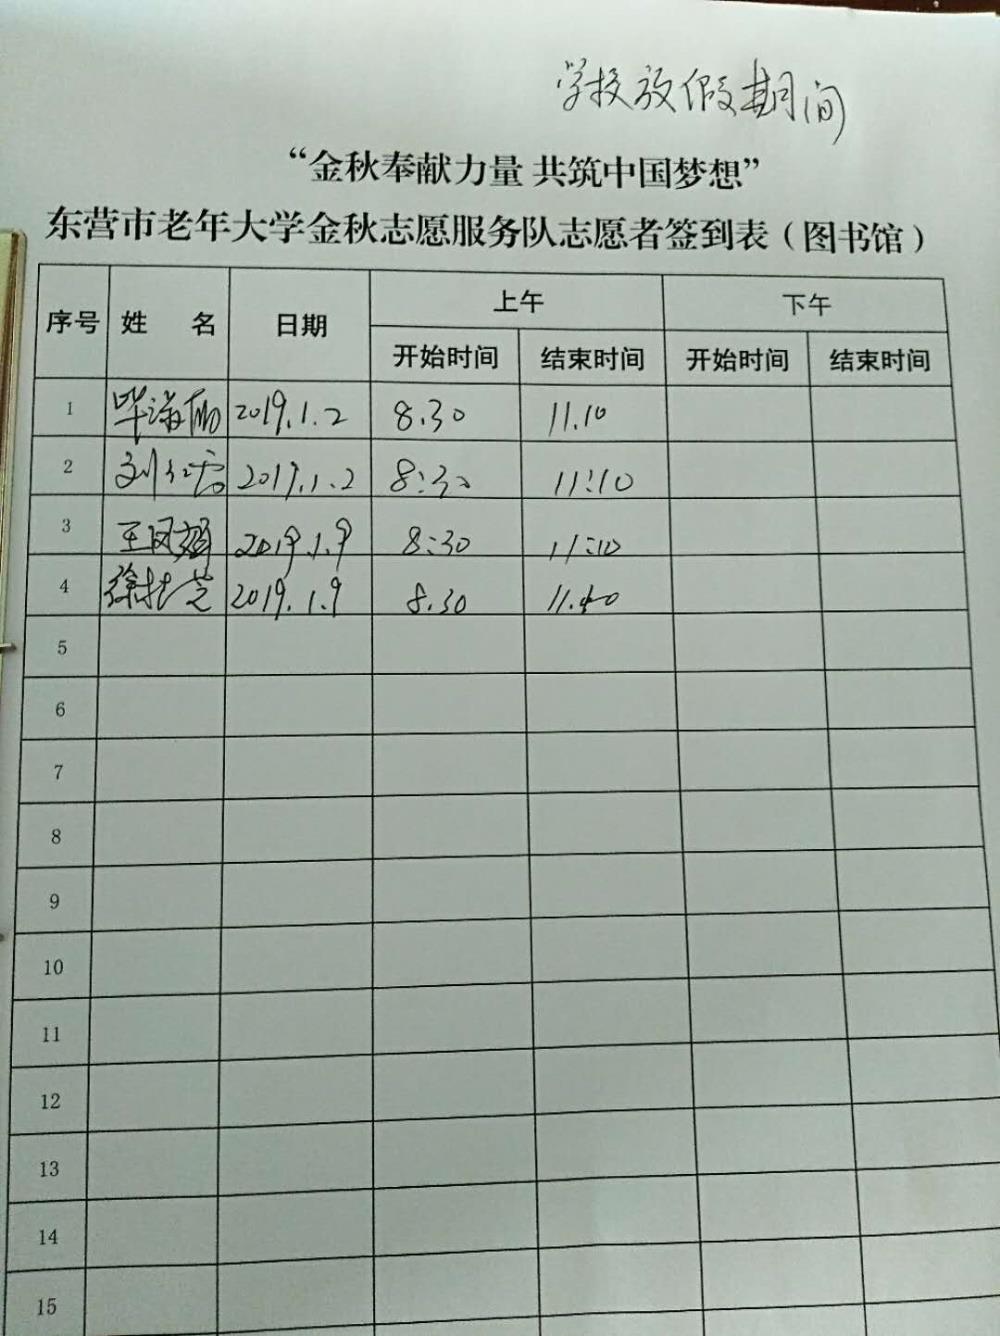 学校放假期间
“金秋奉献力量 共筑中国梦想”
东营市老年大学金秋志愿服务队志愿者签到表（图书馆）
序号 姓 名 日期 上午 下午
开始时间 结束时间 开始时间 结束时间
1 2019.1.2 8.30 11.10
2 2019.1.2 8:30 11:10
3 王凤娟 2019.1.9 8:30 11:10
4 2019.1.9 8.30
5
6
7
8
9
10
11
12
13
14
15